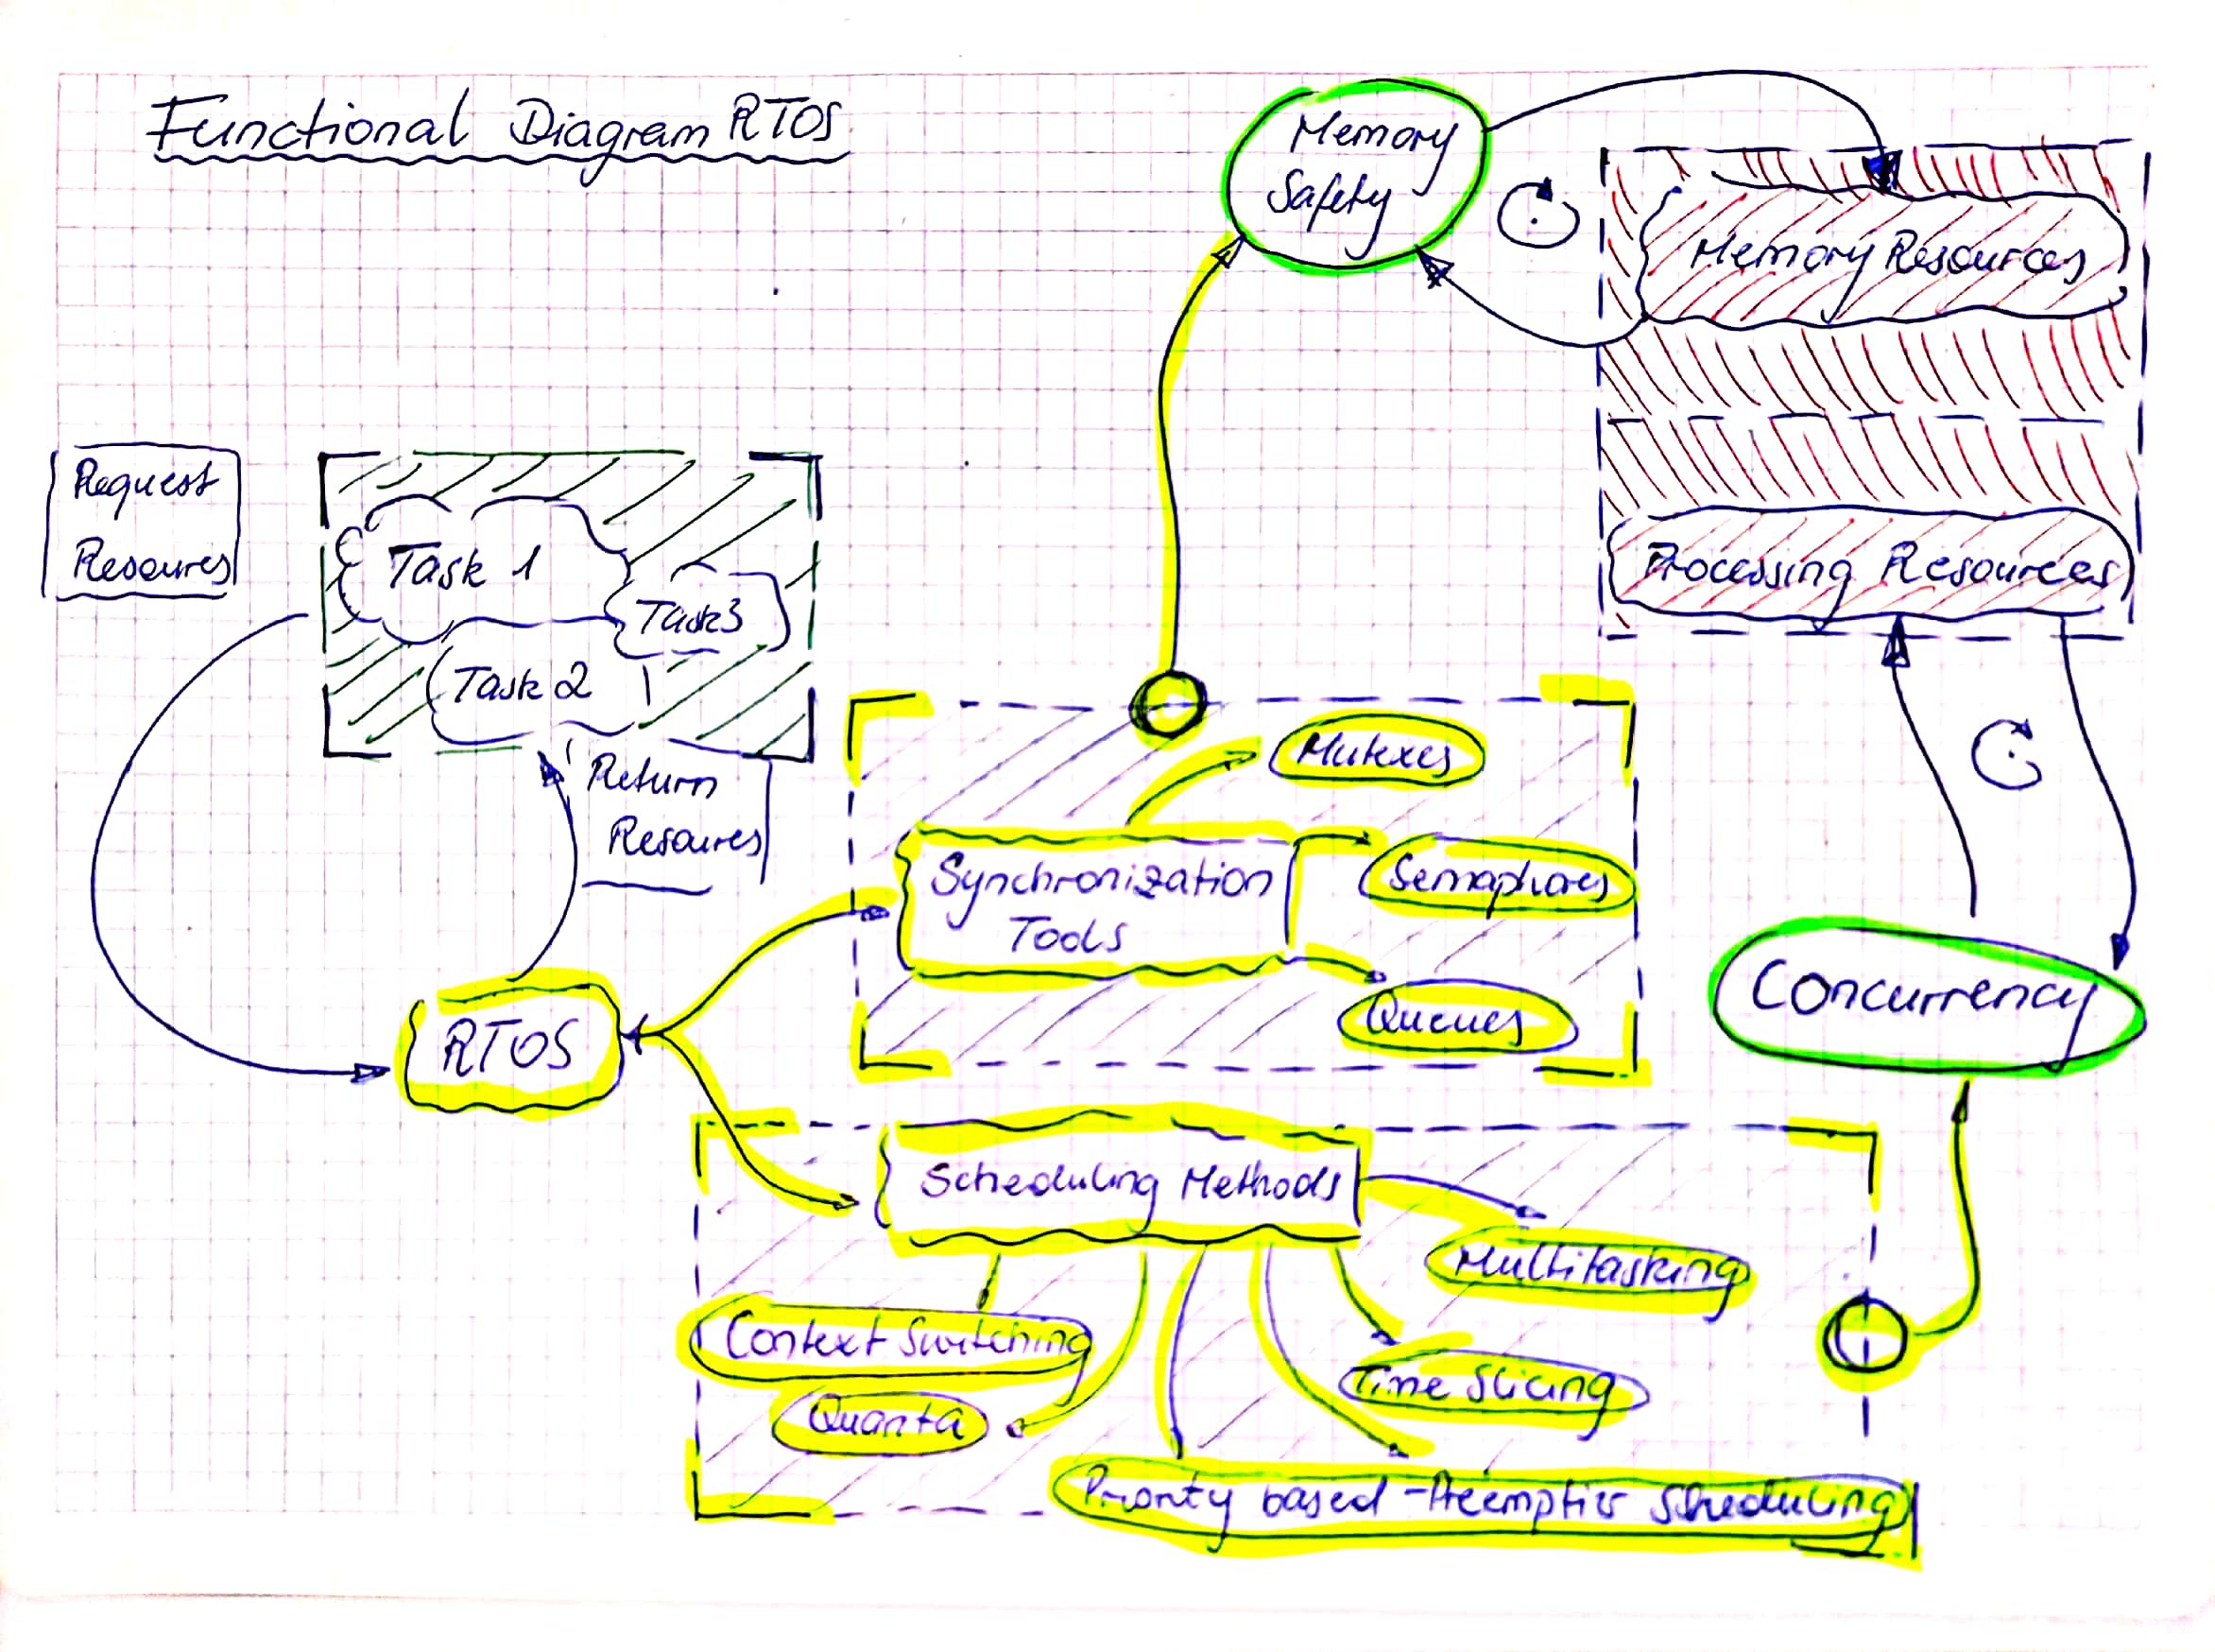 Functional Diagram RTOS
Memory
Safety
Memory Resources
Processing Resources
Request
Resoures
Task 1
Task3
Task 2
Return
Resoures
RTOS
Synchronization
Tools
Mutexes
Semaphores
Queues
Concurrency
Scheduling Methods
Multitasking
Context Switching
Time Slicing
Quanta
Priority based - Preemptiv Scheduling